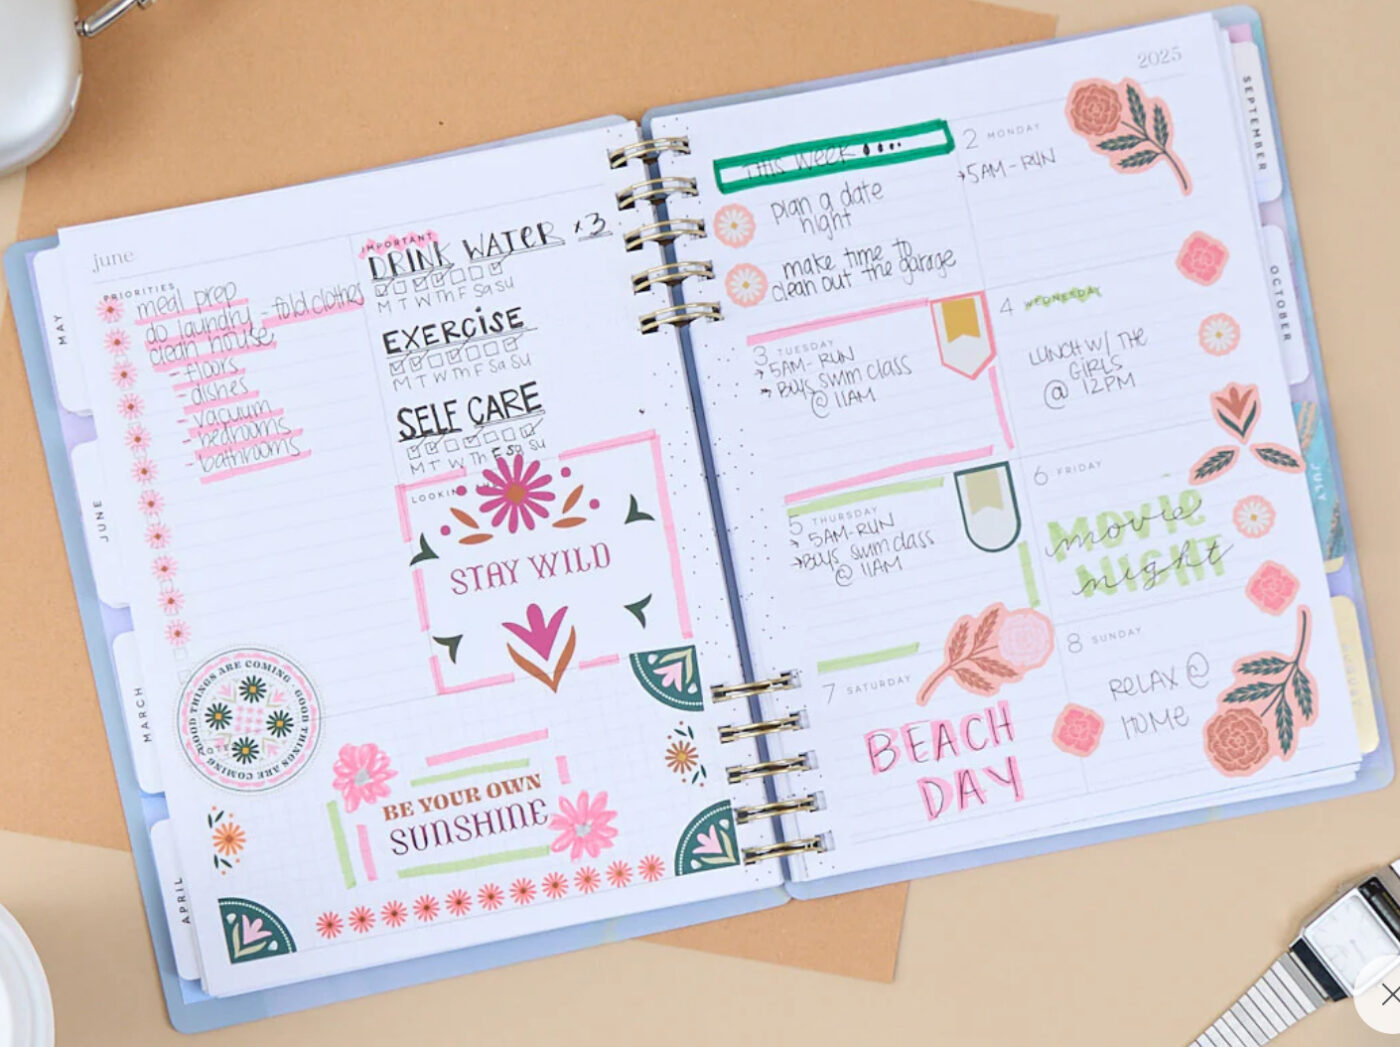 june
PRIORITIES
meal prep
do laundry - fold clothes
clean house
- floors
- dishes
- vacuum
- bedrooms
- bathrooms
IMPORTANT
DRINK WATER x3
M T W Th F Sa Su
EXERCISE
M T W Th F Sa Su
SELF CARE
M T W Th F Sa Su
STAY WILD
GOOD THINGS ARE COMING · GOOD THINGS ARE COMING
BE YOUR OWN
SUNSHINE
MAY
JUNE
MARCH
APRIL
2025
THIS WEEK
plan a date
night
make time to
clean out the garage
2 MONDAY
→5AM-RUN
3 TUESDAY
→5AM-RUN
→Boys swim class
@ 11AM
4 WEDNESDAY
LUNCH W/ THE
GIRLS
@ 12PM
5 THURSDAY
→ 5AM-RUN
→Boys swim class
@ 11AM
6 FRIDAY
MOVIE
movie
NIGHT
night
7 SATURDAY
BEACH
DAY
8 SUNDAY
RELAX @
HOME
SEPTEMBER
OCTOBER
JULY